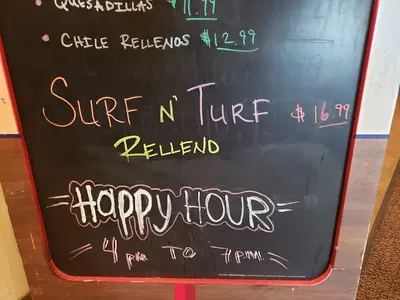 • QUESADILLAS $11.99
• CHILE RELLENOS $12.99
SURF N' TURF $16.99
RELLEND
=HAPPY HOUR=
4 pm TO 7 p.m.